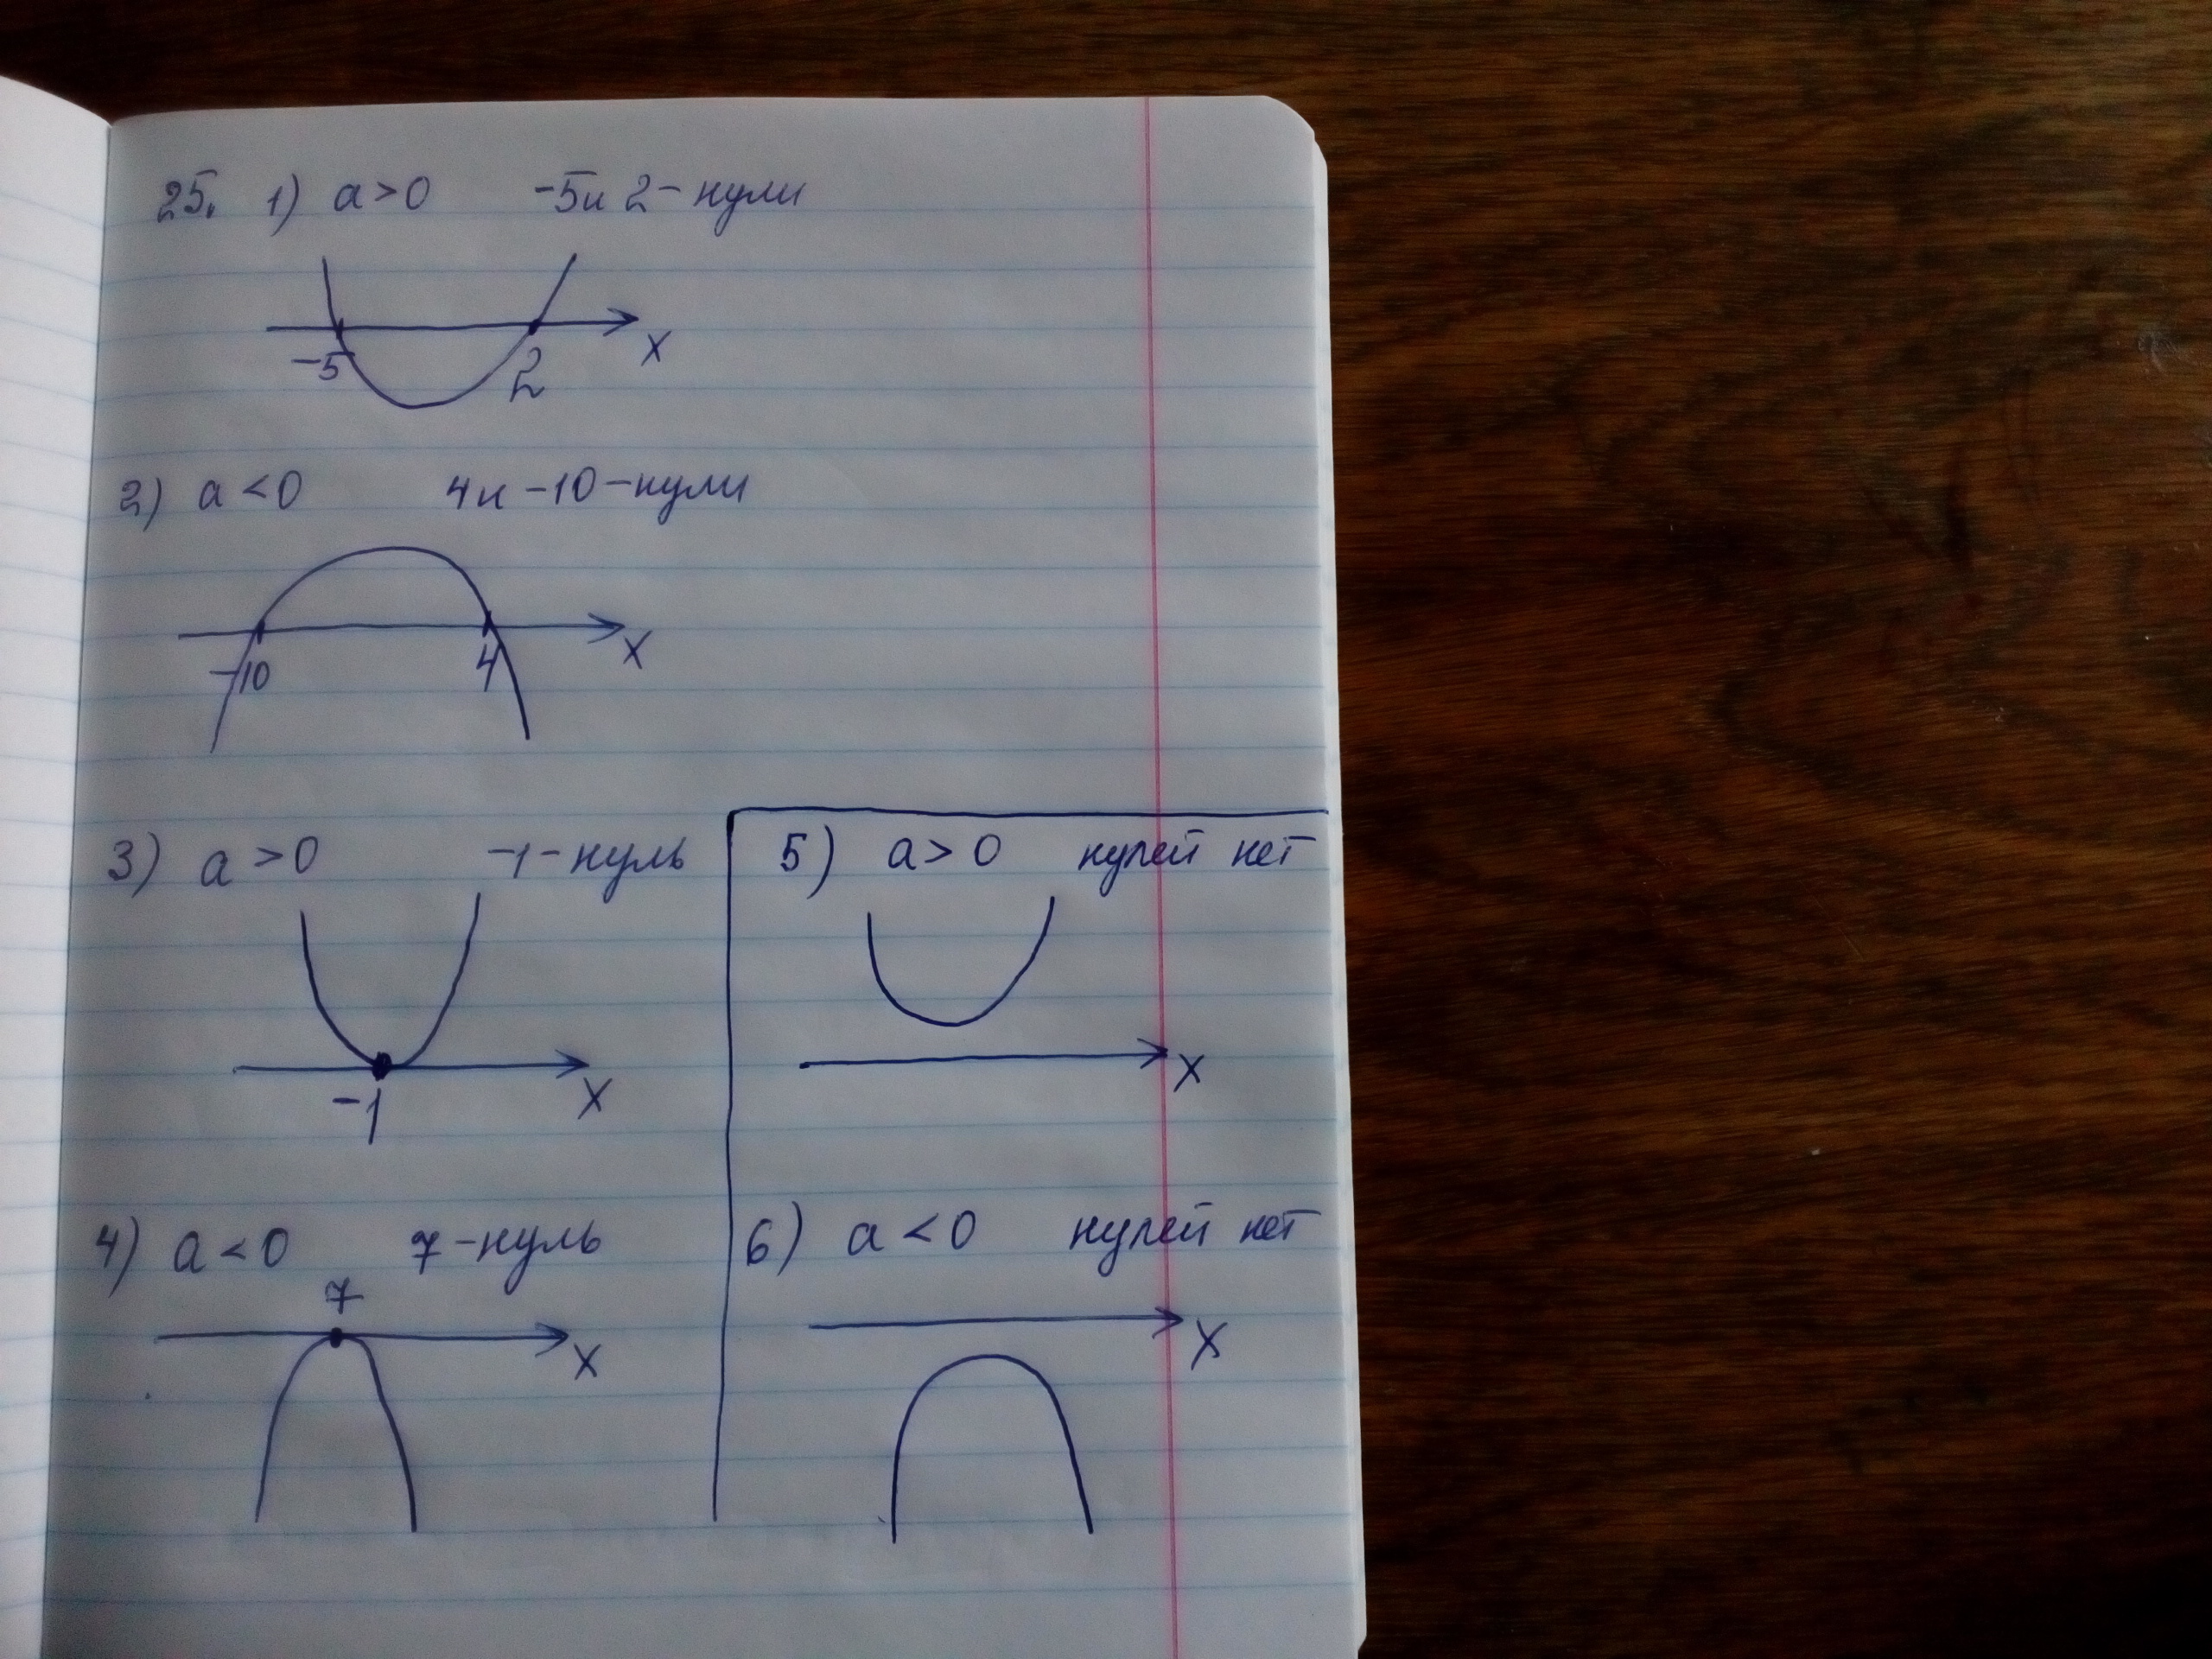 25. 1) a>0 -5и 2- нули
-5 2 x
2) a<0 4и -10-нули
-10 4 x
3) a>0 -1-нуль
-1 x
4) a<0 7-нуль
7
x
5) a>0 нулей нет
x
6) a<0 нулей нет
x